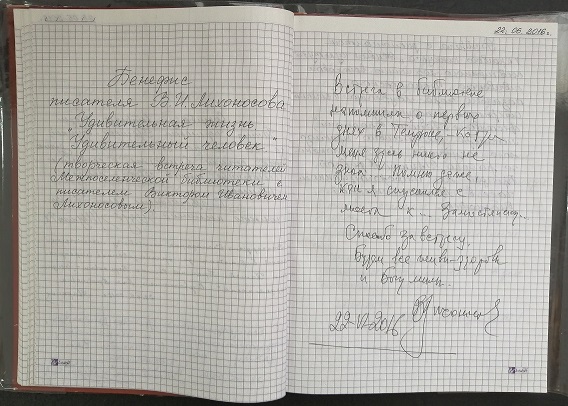 Бенефис
писателя В.И.Лихоносова
Удивительная жизнь
"Удивительный человек"
(творческая встреча читателей
Межпоселенческой библиотеки с
писателем Виктором Ивановичем
Лихоносовым)
22.06.2016г.
Встреча в библиотеке
напомнила о первых
днях в Темрюке, когда
меня здесь никто не
знал... Помню даже,
как я спускался с
моста к...
Спасибо за встречу.
Будьте все живы-здоровы
и Богу милы.
22-VI-2016